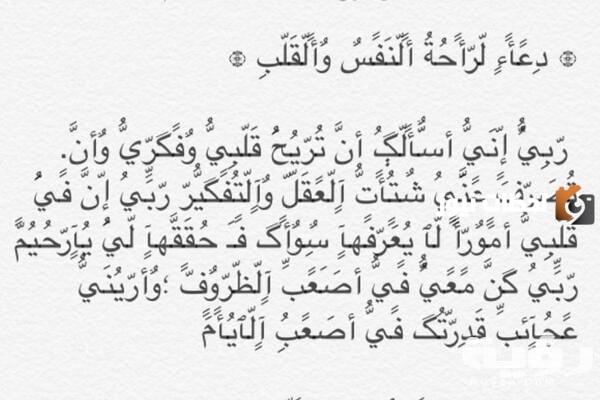 دِعًأءٍ لّرّأحُةّ ألَنَفَسٌ وٌألَقَلَبِ
رّبِيٌ إنَيٌ أسٌألَګ أنَ تٌرّيٌحُ قَلَبِيٌ وٌفَګرّيٌ وٌأنَ.
عنَيٌ شُتٌأتٌ ألَعًقَلَ وٌألَتٌفَګيٌرّ رّبِيٌ إنَ فَيٌ
قَلَبِيٌ أمًوٌرّأ لَأ يٌعًرّفَهأ سٌوٌأګ فَـ حُقَقَهأ لَيٌ يٌأرّحُيٌمً
رّبِيٌ ګنَ مًعًيٌ فَيٌ أصَعًبِ ألَظّرّوٌفَ ؛وٌأرّيٌنَيٌ
عًجّأئبِ قَدِرّتٌګ فَيٌ أصَعًبِ ألَأيٌأمً
رؤية